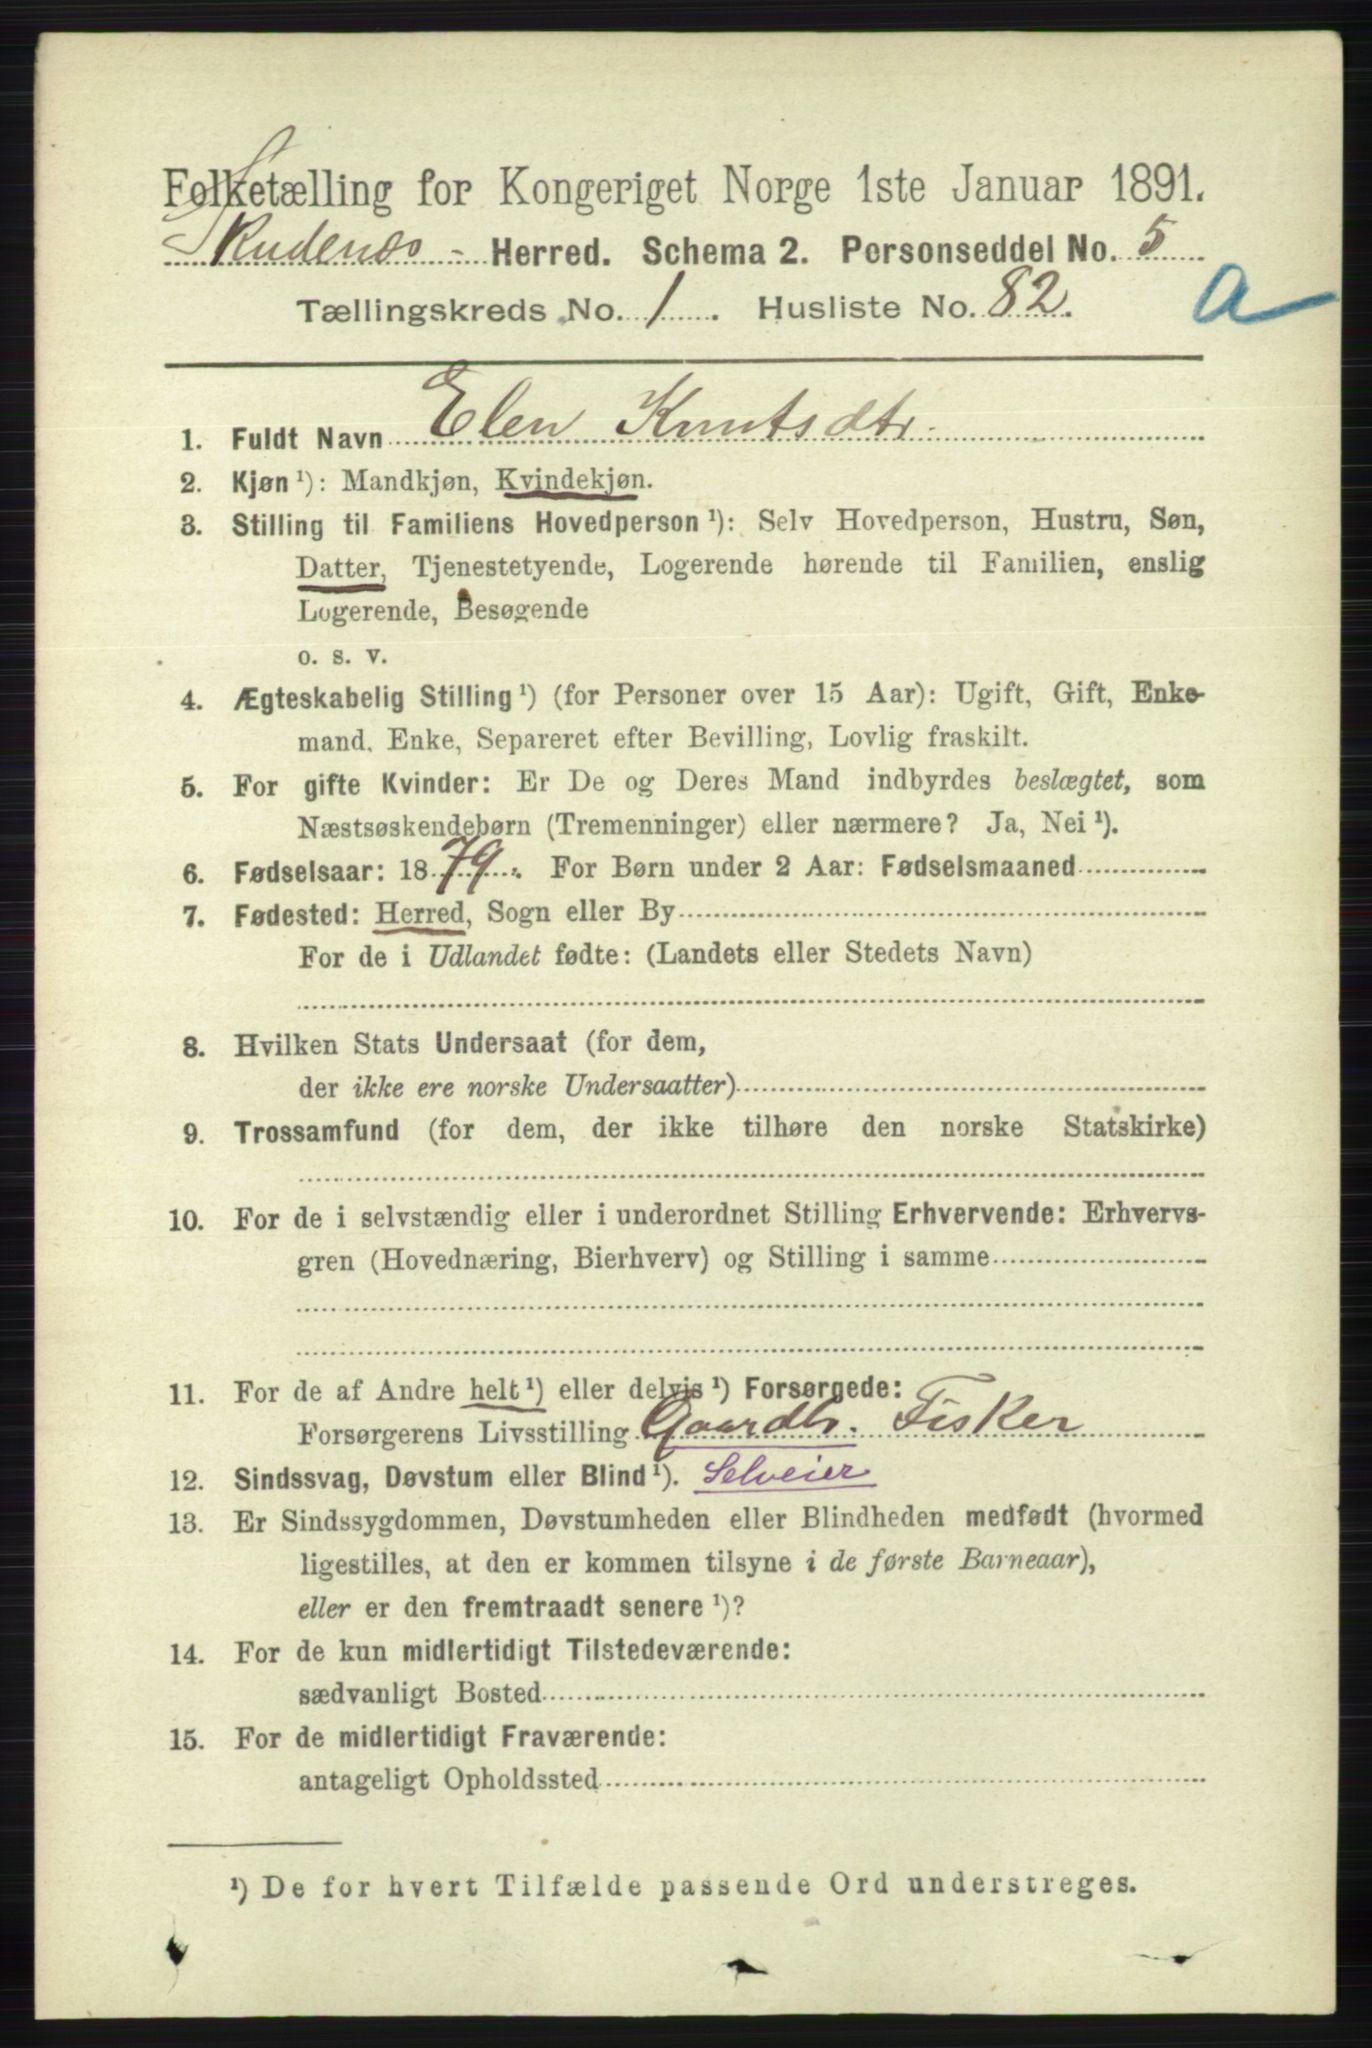 Folketælling for Kongeriget Norge 1ste Januar 1891.
Skudenæs - Herred. Schema 2. Personseddel No. 5
Tællingskreds No. 1. Husliste No. 82.
a
1. Fuldt Navn Elen Knutsdtr.
2. Kjøn¹): Mandkjøn, Kvindekjøn.
3. Stilling til Familiens Hovedperson¹): Selv Hovedperson, Hustru, Søn,
Datter, Tjenestetyende, Logerende hørende til Familien, enslig
Logerende, Besøgende
o. s. v.
4. Ægteskabelig Stilling¹) (for Personer over 15 Aar): Ugift, Gift, Enke-
mand, Enke, Separeret efter Bevilling, Lovlig fraskilt.
5. For gifte Kvinder: Er De og Deres Mand indbyrdes beslægtet, som
Næstsøskendebørn (Tremenninger) eller nærmere? Ja, Nei¹).
6. Fødselsaar: 1879. For Børn under 2 Aar: Fødselsmaaned
7. Fødested: Herred, Sogn eller By
For de i Udlandet fødte: (Landets eller Stedets Navn)
8. Hvilken Stats Undersaat (for dem,
der ikke ere norske Undersaatter)
9. Trossamfund (for dem, der ikke tilhøre den norske Statskirke)
10. For de i selvstændig eller i underordnet Stilling Erhvervende: Erhvervs-
gren (Hovednæring, Bierhverv) og Stilling i samme
11. For de af Andre helt¹) eller delvis¹) Forsørgede:
Forsørgerens Livsstilling Gaardbr. Fisker
12. Sindssvag, Døvstum eller Blind¹). Selveier
13. Er Sindssygdommen, Døvstumheden eller Blindheden medfødt (hvormed
ligestilles, at den er kommen tilsyne i de første Barneaar),
eller er den fremtraadt senere¹)?
14. For de kun midlertidigt Tilstedeværende:
sædvanligt Bosted
15. For de midlertidigt Fraværende:
antageligt Opholdssted
¹) De for hvert Tilfælde passende Ord understreges.